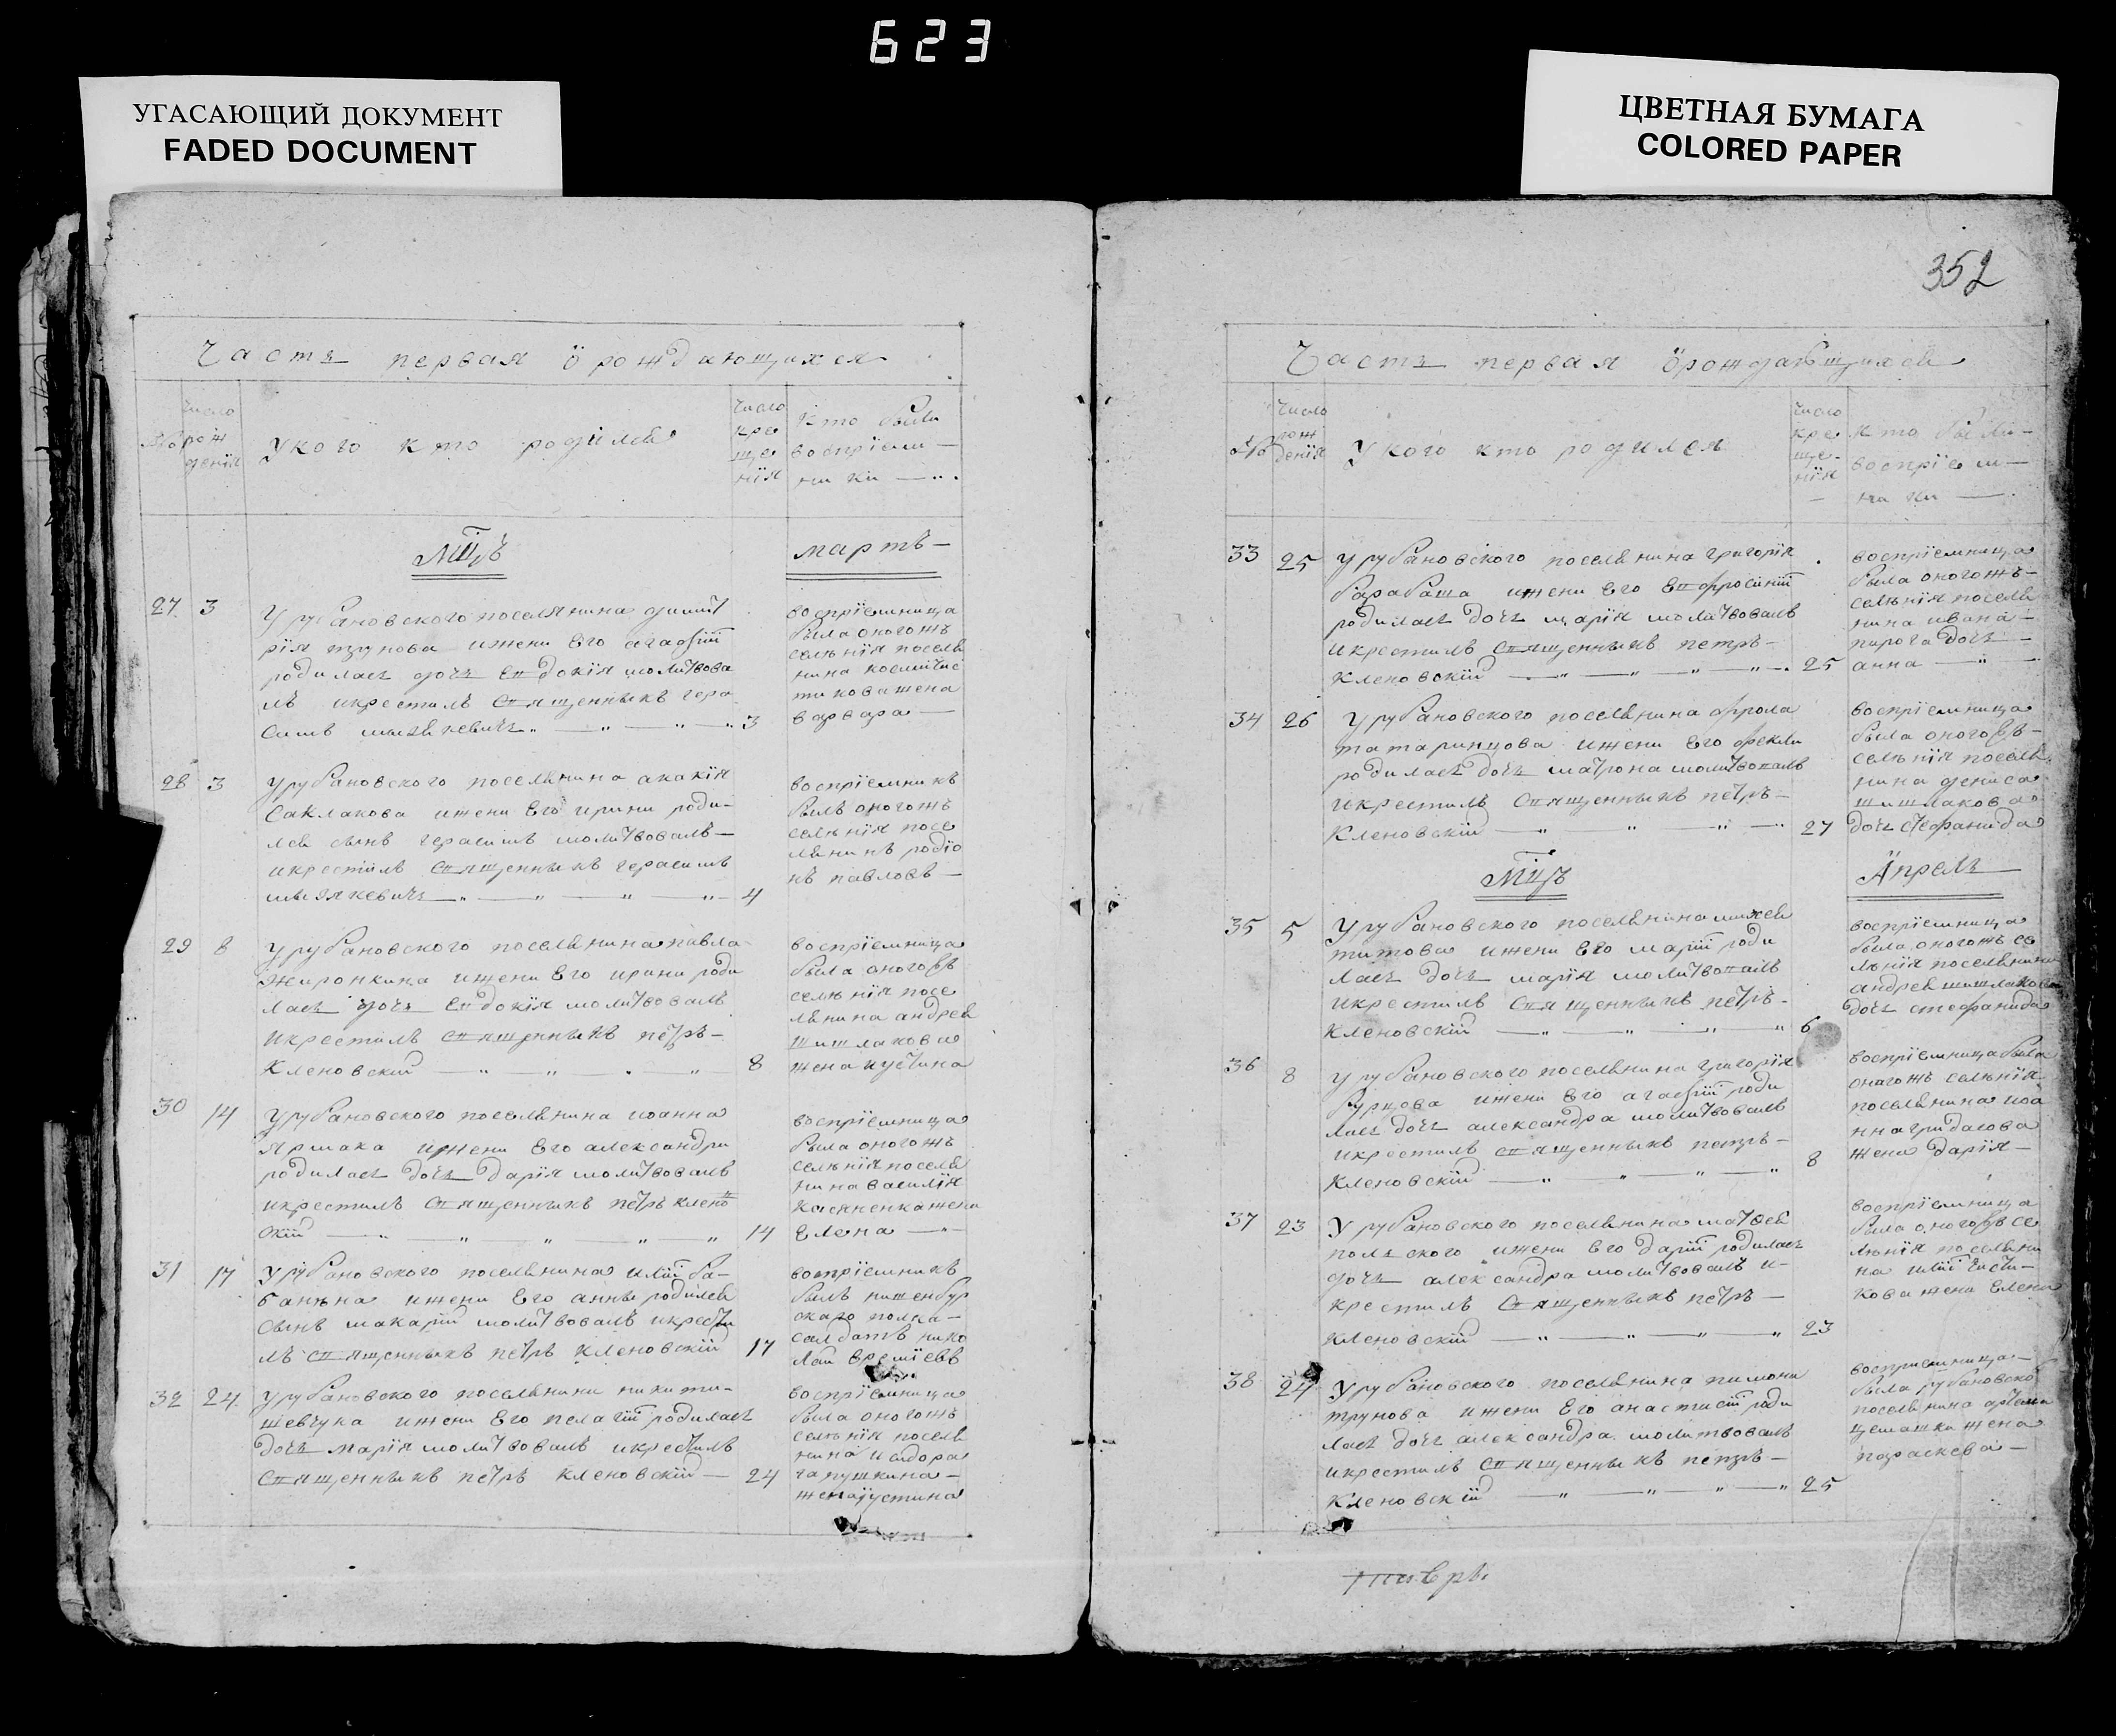 623
УГАСАЮЩИЙ ДОКУМЕНТ
FADED DOCUMENT
ЦВЕТНАЯ БУМАГА
COLORED PAPER
Часть первая ӧ рождающихся
№
число
рож
денія
У кого кто родился
число
кре
ще
нія
кто были
воспріем
ники
Мцъ
мартъ
27 3
У рубановского поселянина дмит
рія трунова и жени Его агафіи
родилась дочь Евдокія молитвова
лъ и крестилъ священникъ гера
симъ 3
воспріемница
была оногожъ
селенія поселя
нина
жена
варвара
28 3
У рубановского поселянина акакія
Саклакова и жени Его ирини роди
лся сынъ герасимъ молитвовалъ
и крестилъ священникъ герасимъ
4
воспріемникъ
билъ оногожъ
селенія посе
лянинъ родіо
нъ павловъ
29 8
У рубановского поселянина павла
жиронкина и жени Его ирини роди
лась дочь Евдокія молитвовалъ
и крестилъ священникъ петръ
Кленовскій 8
воспріемница
била оногожъ
селенія посе
лянина андрея
шишлакова
жена иустина
30 14
У рубановского поселянина иоанна
Ярмака и жени Его александри
родилась дочь Дарія молитвовалъ
и крестилъ священникъ петръ клено
вскій 14
воспріемница
била оногожъ
селенія поселя
нина василія
Касяненка жена
Елена
31 17
У рубановского поселянина иліи ба
банина и жени Его анны родился
сынъ макарій молитвовалъ и крести
лъ священникъ петръ Кленовскій 17
воспріемникъ
билъ
скаго полка
салдатъ нико
лай Еремѣевъ
32 24
У рубановского поселянина никити
шевчука и жени Его пелагіи родилась
дочь марія молитвовалъ и крестилъ
священникъ петръ Кленовскій 24
воспріемница
была оногожъ
селенія поселя
нина исидора
гапушкина
жена иустина
352
Часть первая ӧ рождающихся
№
Число
рож
денія
У кого кто родился
число
кре
ще
нія
кто были
воспріем
ники
33 25
У рубановского поселянина григорія
барабаша и жени Его Евфросиніи
родилась дочь марія молитвовалъ
и крестилъ священникъ петръ
Кленовскій 25
воспріемница
била оногожъ
селенія поселя
нина ивана
пирога дочь
анна
34 26
У рубановского поселянина фрола
татаринцова и жени Его фекли
родилась дочь матрона молитвовалъ
и крестилъ священникъ петръ
Кленовскій 27
воспріемница
била оногожъ
селенія поселя
нина дениса
шишлакова
дочь стефанида
Мцъ
Апрель
35 5
У рубановского поселянина михея
титова и жени Его маріи роди
лась дочь марія молитвовалъ
и крестилъ священникъ петръ
Кленовскій 6
воспріемница
била оногожъ се
ленія поселянина
андрея шишлакова
дочь стефанида
36 8
У рубановского поселянина григорія
бурцова и жени Его агафіи роди
лась дочь александра молитвовалъ
и крестилъ священникъ петръ
Кленовскій 8
воспріемница была
оногожъ селенія
поселянина иоа
нна гридасова
жена Дарія
37 23
У рубановского поселянина матвея
полского и жени Его Даріи родилась
дочь александра молитвовалъ и
крестилъ священникъ петръ
Кленовскій 23
воспріемница
била оногожъ се
ленія поселяни
на иліи чисти
кова жена Елена
38 24
У рубановского поселянина пимона
трунова и жени Его анастасіи роди
лась дочь александра молитвовалъ
и крестилъ священникъ петръ
Кленовскій 25
воспріемница
била рубановско
поселянина артема
цемашки жена
параскева